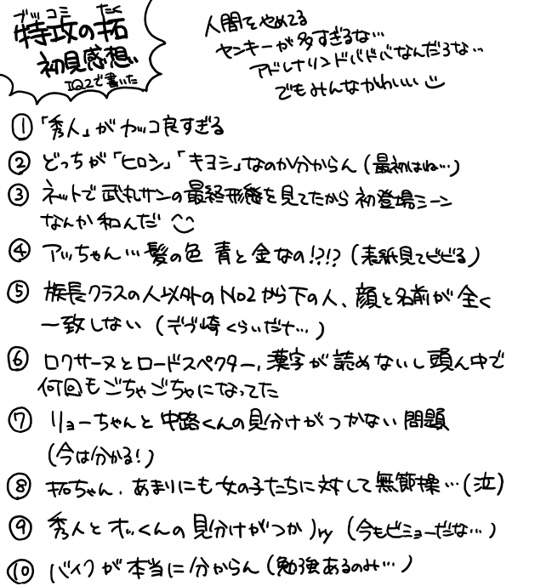 ブッコミ たく
特攻の拓
初見感想
IQ2で書いた
人間をやめてる
ヤンキーが多すぎるな…
アドレナリンドバドバなんだろな…
でもみんなかわいい
①「秀人」がカッコ良すぎる
②どっちが「ヒロシ」「キヨシ」なのか分からん(最初はね…)
③ネットで武丸サンの最終形態を見てたから初登場シーン
なんか和んだ
④アッちゃん…髪の色 青と金なの!?!?(表紙見てビビる)
⑤族長クラスの人以外のNo2から下の人、顔と名前が全く
一致しない(デブ崎くらいだナ…)
⑥ロクサーヌとロードスペクター、漢字が読めないし頭ん中で
何回もごちゃごちゃになってた
⑦リョーちゃんと中路くんの見分けがつかない問題
(今は分かる!)
⑧拓ちゃん、あまりにも女の子たちに対して無節操…(泣)
⑨秀人とオッくんの見分けがつか)ry(今もビミョーだな…)
⑩バイクが本当に分からん(勉強あるのみ…)